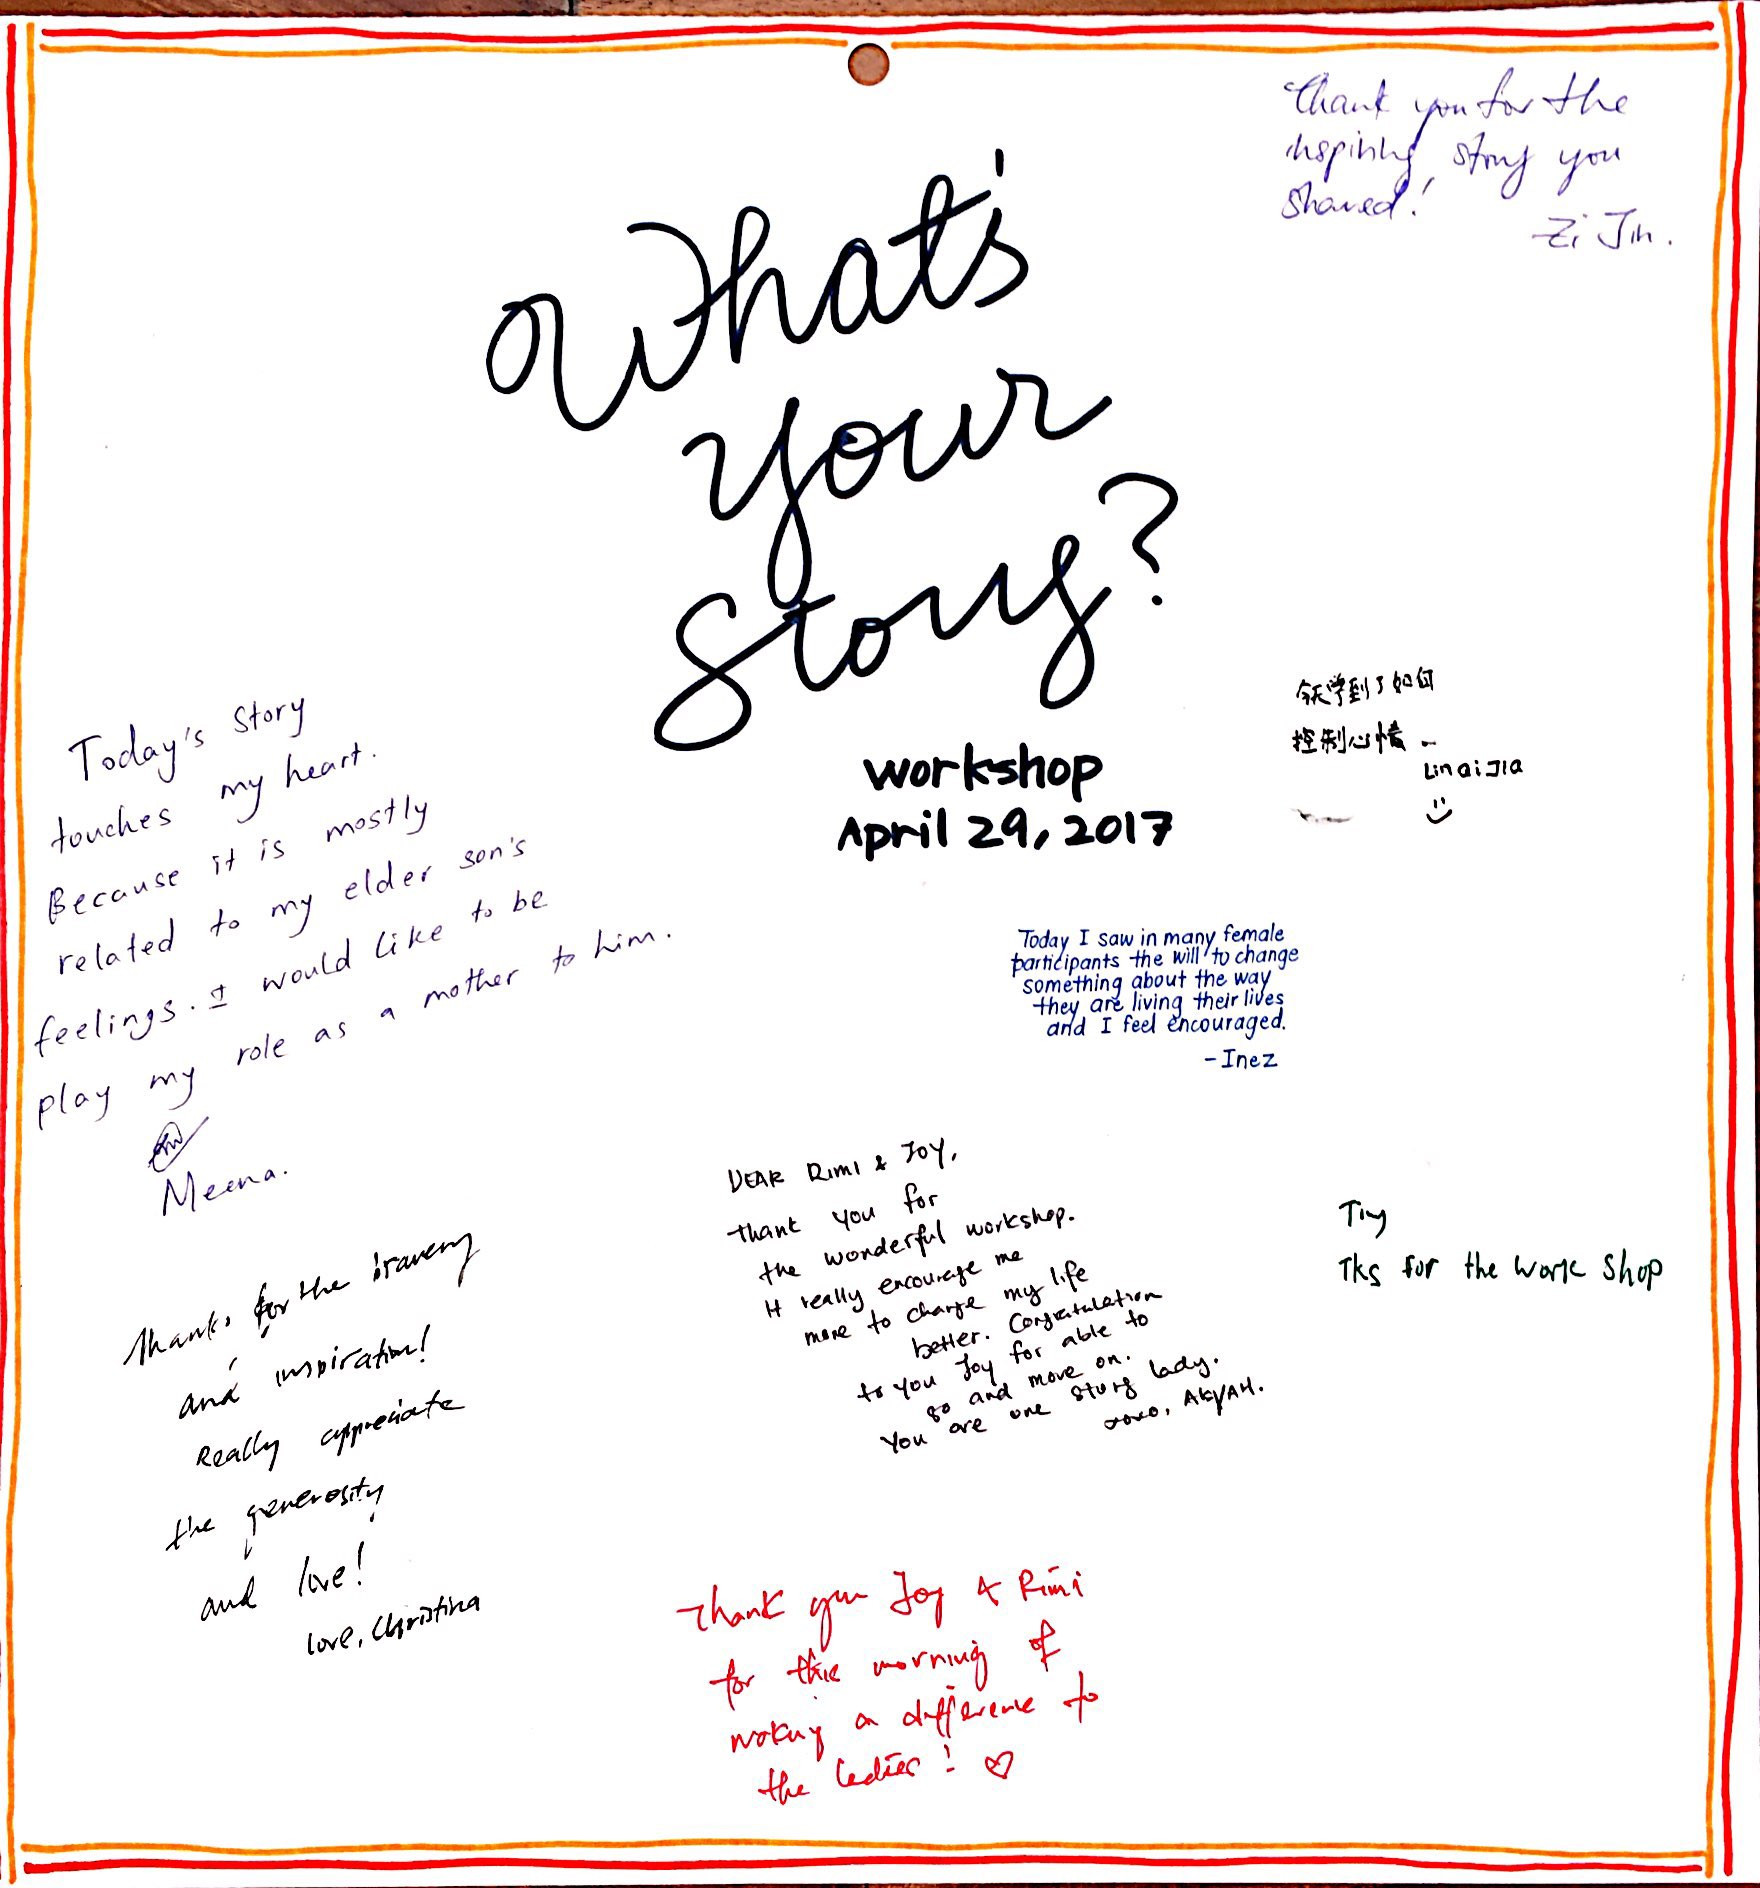 Thank you for the
inspiring story you
shared!
Zi Jin.
What's
your
Story?
workshop
April 29, 2017
今天学到了如何
控制心情
Lin Qi Jia
Today's Story
touches my heart.
Because it is mostly
related to my elder son's
feelings. I would like to be
play my role as a mother to him.
Meena.
Today I saw in many female
participants the will to change
something about the way
they are living their lives
and I feel encouraged.
- Inez
DEAR RIMI & JOY,
thank you for
the wonderful workshop.
It really encourage me
more to change my life
better. Congratulation
to you Joy for able to
go and move on.
You are one strong lady.
xoxo, AKYAH.
Tks for the Work Shop
Thanks for the bravery
and inspiration!
Really appreciate
the generosity
and love!
love, Christina
Thank you Joy & Rimi
for this morning of
making a difference to
the ladies! ♡